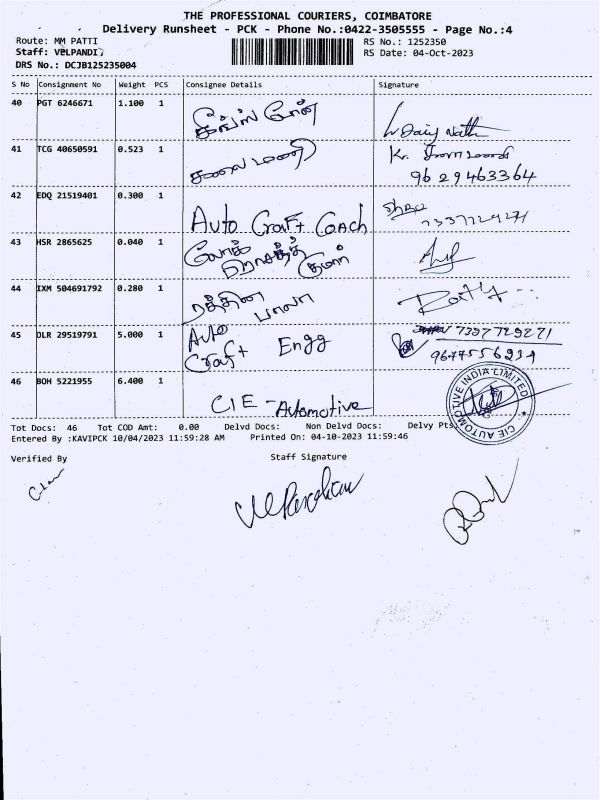 THE PROFESSIONAL COURIERS, COIMBATORE
Delivery Runsheet - PCK - Phone No.:0422-3505555 - Page No.:4
Route: MM PATTI
RS No.: 1252350
Staff: VELPANDI,
RS Date: 04-Oct-2023
DRS No.: DCJB125235004
S No Consignment No Weight PCS Consignee Details Signature
40 PGT 6246671 1.100 1
41 TCG 40650591 0.523 1 கலைமணி
9629463364
42 EDQ 21519401 0.300 1 Auto Craft Coach
7337729271
43 HSR 2865625 0.040 1
குமார்
44 IXM 504691792 0.280 1 ரத்தின
பாலா
45 OLR 29519791 5.000 1 Auto Craft Engg 7397729271
9677556239
46 BOH 5221955 6.400 1 CIE - Automotive
CIE AUTOMOTIVE INDIA LIMITED
Tot Docs: 46 Tot COD Amt: 0.00 Delvd Docs: Non Delvd Docs: Delvy Pts
Entered By :KAVIPCK 10/04/2023 11:59:28 AM Printed On: 04-10-2023 11:59:46
Verified By Staff Signature